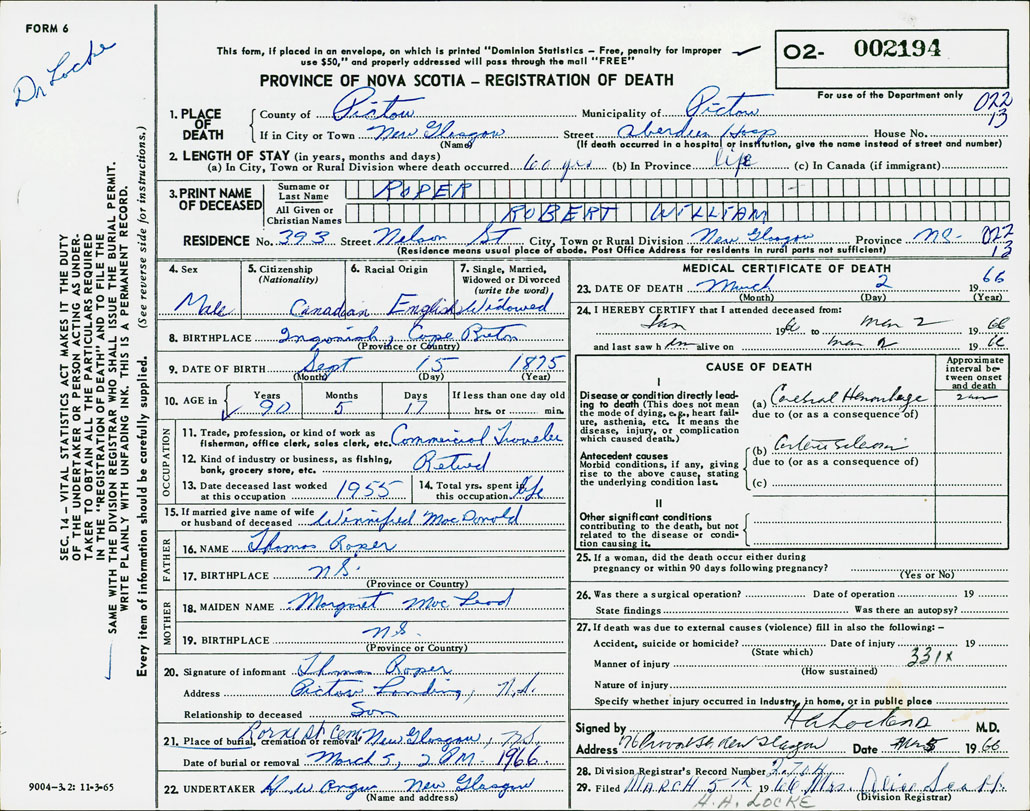 FORM 6
Dr Locke
This form, if placed in an envelope, on which is printed "Dominion Statistics – Free, penalty for improper
use $50," and properly addressed will pass through the mail "FREE"
O2- 002194
PROVINCE OF NOVA SCOTIA – REGISTRATION OF DEATH
For use of the Department only
022
13
1. PLACE OF DEATH
County of Pictou Municipality of Pictou
If in City or Town New Glasgow Street Aberdeen Hosp House No.
(Name) (If death occurred in a hospital or institution, give the name instead of street and number)
2. LENGTH OF STAY (in years, months and days)
(a) In City, Town or Rural Division where death occurred 60 yrs (b) In Province life (c) In Canada (if immigrant)
3. PRINT NAME OF DECEASED
Surname or Last Name ROPER
All Given or Christian Names ROBERT WILLIAM
RESIDENCE No. 393 Street Nelson St City, Town or Rural Division New Glasgow Province NS- 022
13
(Residence means usual place of abode. Post Office Address for residents in rural parts not sufficient)
4. Sex
Male
5. Citizenship
(Nationality)
Canadian
6. Racial Origin
English
7. Single, Married,
Widowed or Divorced
(write the word)
Widowed
8. BIRTHPLACE Ingonish, Cape Breton
(Province or Country)
9. DATE OF BIRTH Sept 15 1875
(Month) (Day) (Year)
10. AGE in Years Months Days If less than one day old
90 5 17 hrs. or min.
OCCUPATION
11. Trade, profession, or kind of work as
fishermen, office clerk, sales clerk, etc. Commercial Traveler
12. Kind of industry or business, as fishing,
bonk, grocery store, etc. Retired
13. Date deceased last worked
at this occupation 1955
14. Total yrs. spent in
this occupation life
15. If married give name of wife
or husband of deceased Winnifred MacDonald
FATHER
16. NAME Thomas Roper
17. BIRTHPLACE N.S.
(Province or Country)
MOTHER
18. MAIDEN NAME Margaret MacLeod
19. BIRTHPLACE N.S.
(Province or Country)
20. Signature of informant Thomas Roper
Address Pictou Landing, N.S.
Relationship to deceased Son
21. Place of burial, cremation or removal Lorne St Cem New Glasgow, NS
Date of burial or removal March 5, 2 PM. 1966
22. UNDERTAKER H. W. Angus New Glasgow
(Name and address)
MEDICAL CERTIFICATE OF DEATH
23. DATE OF DEATH March 2 1966
(Month) (Day) (Year)
24. I HEREBY CERTIFY that I attended deceased from:
Jan 19 to Mar 2 1966
and last saw h im alive on Mar 2 1966
CAUSE OF DEATH
Approximate interval between onset and death
I
Disease or condition directly leading to death (This does not mean
the mode of dying, e.g., heart failure, asthenia, etc. It means the
disease, injury, or complication
which caused death.)
(a) Cerebral Hemorrhage
due to (or as a consequence of)
Antecedent causes
Morbid conditions, if any, giving
rise to the above cause, stating
the underlying condition last.
(b)
due to (or as a consequence of)
(c)
II
Other significant conditions
contributing to the death, but not
related to the disease or condition causing it.
25. If a woman, did the death occur either during
pregnancy or within 90 days following pregnancy?
(Yes or No)
26. Was there a surgical operation? Date of operation 19
State findings Was there an autopsy?
27. If death was due to external causes (violence) fill in also the following: –
Accident, suicide or homicide? Date of injury 19
(State which)
331x
Manner of injury
(How sustained)
Nature of injury
Specify whether injury occurred in industry, in home, or in public place
Signed by H A Locke M.D.
Address Provost St New Glasgow Date Mar 5 1966
28. Division Registrar's Record Number
29. Filed MARCH 5th 1966 Mrs.
(Division Registrar)
H. A. LOCKE
SEC. 14 – VITAL STATISTICS ACT MAKES IT THE DUTY
OF THE UNDERTAKER OR PERSON ACTING AS UNDER-
TAKER TO OBTAIN ALL THE PARTICULARS REQUIRED
IN THE "REGISTRATION OF DEATH" AND TO FILE THE
SAME WITH THE DIVISION REGISTRAR WHO SHALL ISSUE THE BURIAL PERMIT.
WRITE PLAINLY WITH UNFADING INK. THIS IS A PERMANENT RECORD.
Every item of information should be carefully supplied. (See reverse side for instructions.)
9004-3.21 11-3-65